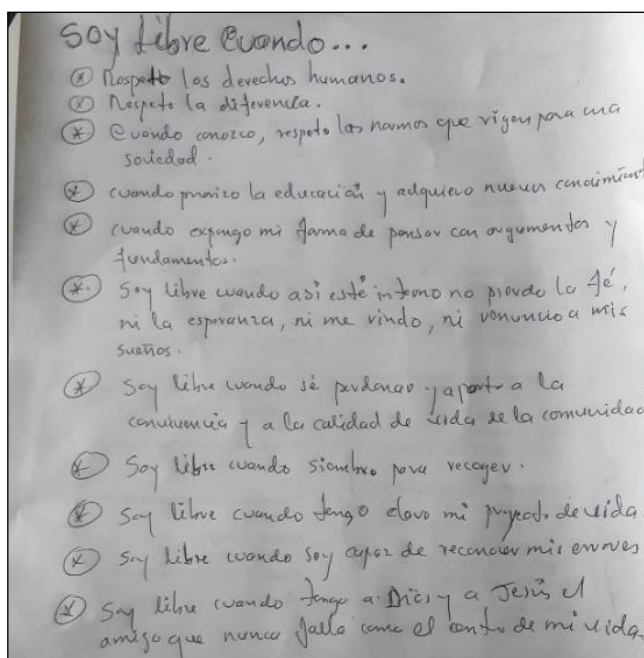 Soy libre cuando...
* Respeto los derechos humanos.
* Respeto la diferencia.
* Cuando conozco, respeto las normas que rigen para una
sociedad.
* cuando priorizo la educación y adquiero nuevos conocimient
* cuando expongo mi forma de pensar con argumentos y
fundamentos.
* Soy libre cuando así esté interno no pierdo la fé,
ni la esperanza, ni me rindo, ni renuncio a mis
sueños.
* Soy libre cuando sé perdonar y aporto a la
convivencia y a la calidad de vida de la comunidad
* Soy libre cuando siembro para recoger.
* Soy libre cuando tengo claro mi proyecto de vida
* Soy libre cuando soy capaz de reconocer mis errores
* Soy libre cuando tengo a Dios y a Jesús el
amigo que nunca falla como el centro de mi vida.